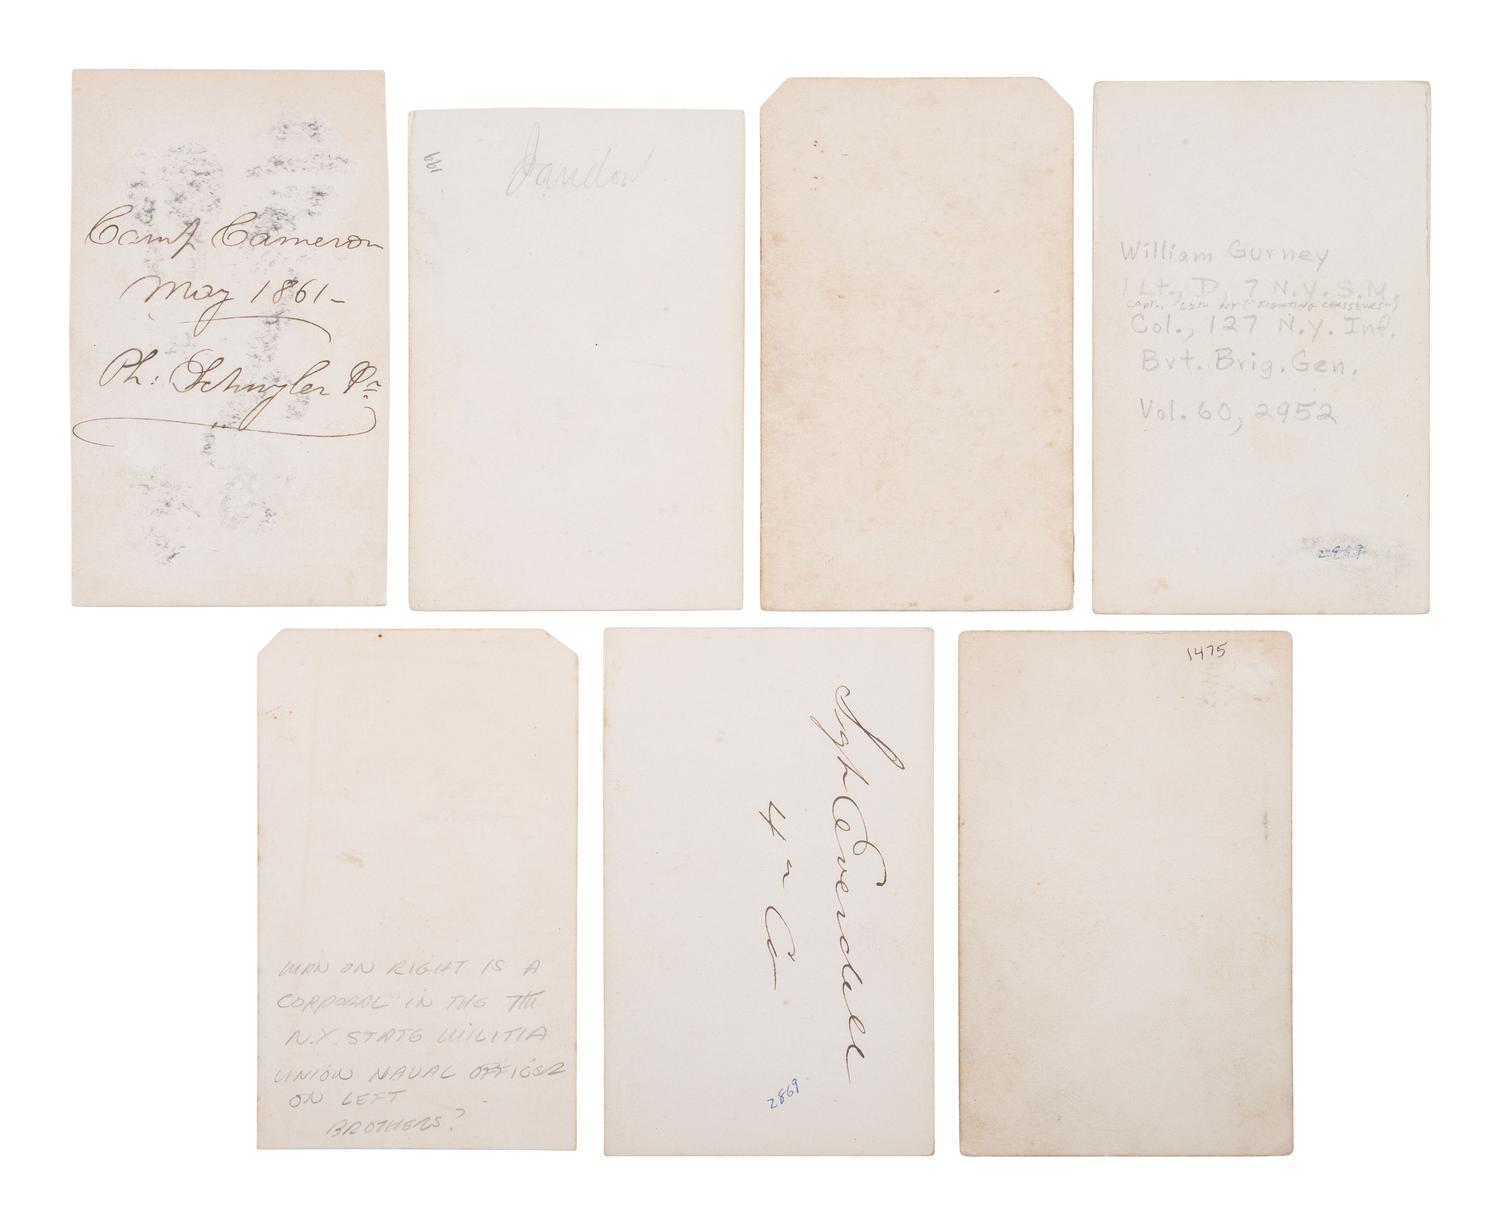 Camp Cameron
May 1861-
Ph: Schuyler Pr
199
Jaudon
William Gurney
1 Lt., D, 7 N.Y.S.M.,
Capt., 65th NY ("FIGHTING CHASSEURS")
Col., 127 N.Y. Inf.
Bvt. Brig. Gen.
Vol. 60, 2952
2869
MAN ON RIGHT IS A
CORPORAL IN THE 7th
N.Y. STATE MILITIA
UNION NAVAL OFFICER
ON LEFT
BROTHERS?
Sergt Crendell
4th Co
2869
1475